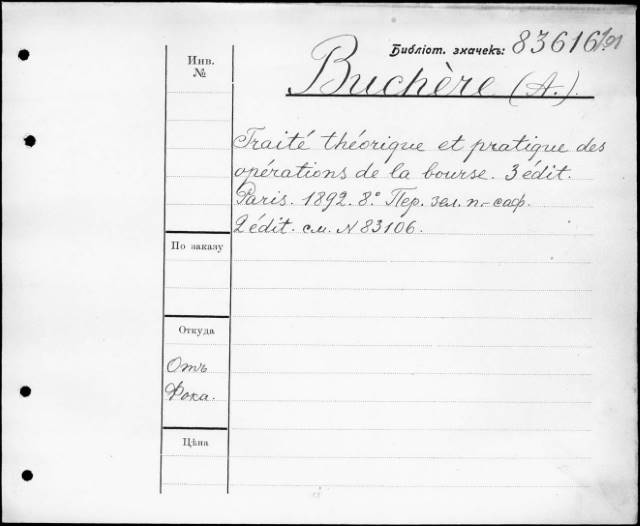 Библіот. значекъ: 83616
Инв.
№
Buchère (A.).
Traité théorique et pratique des
opérations de la bourse. 3 édit.
Paris. 1892. 8.° Пер. зел. п.-саф.
2 édit. см. N 83106.
По заказу
Откуда
Отъ
Фока.
Цѣна